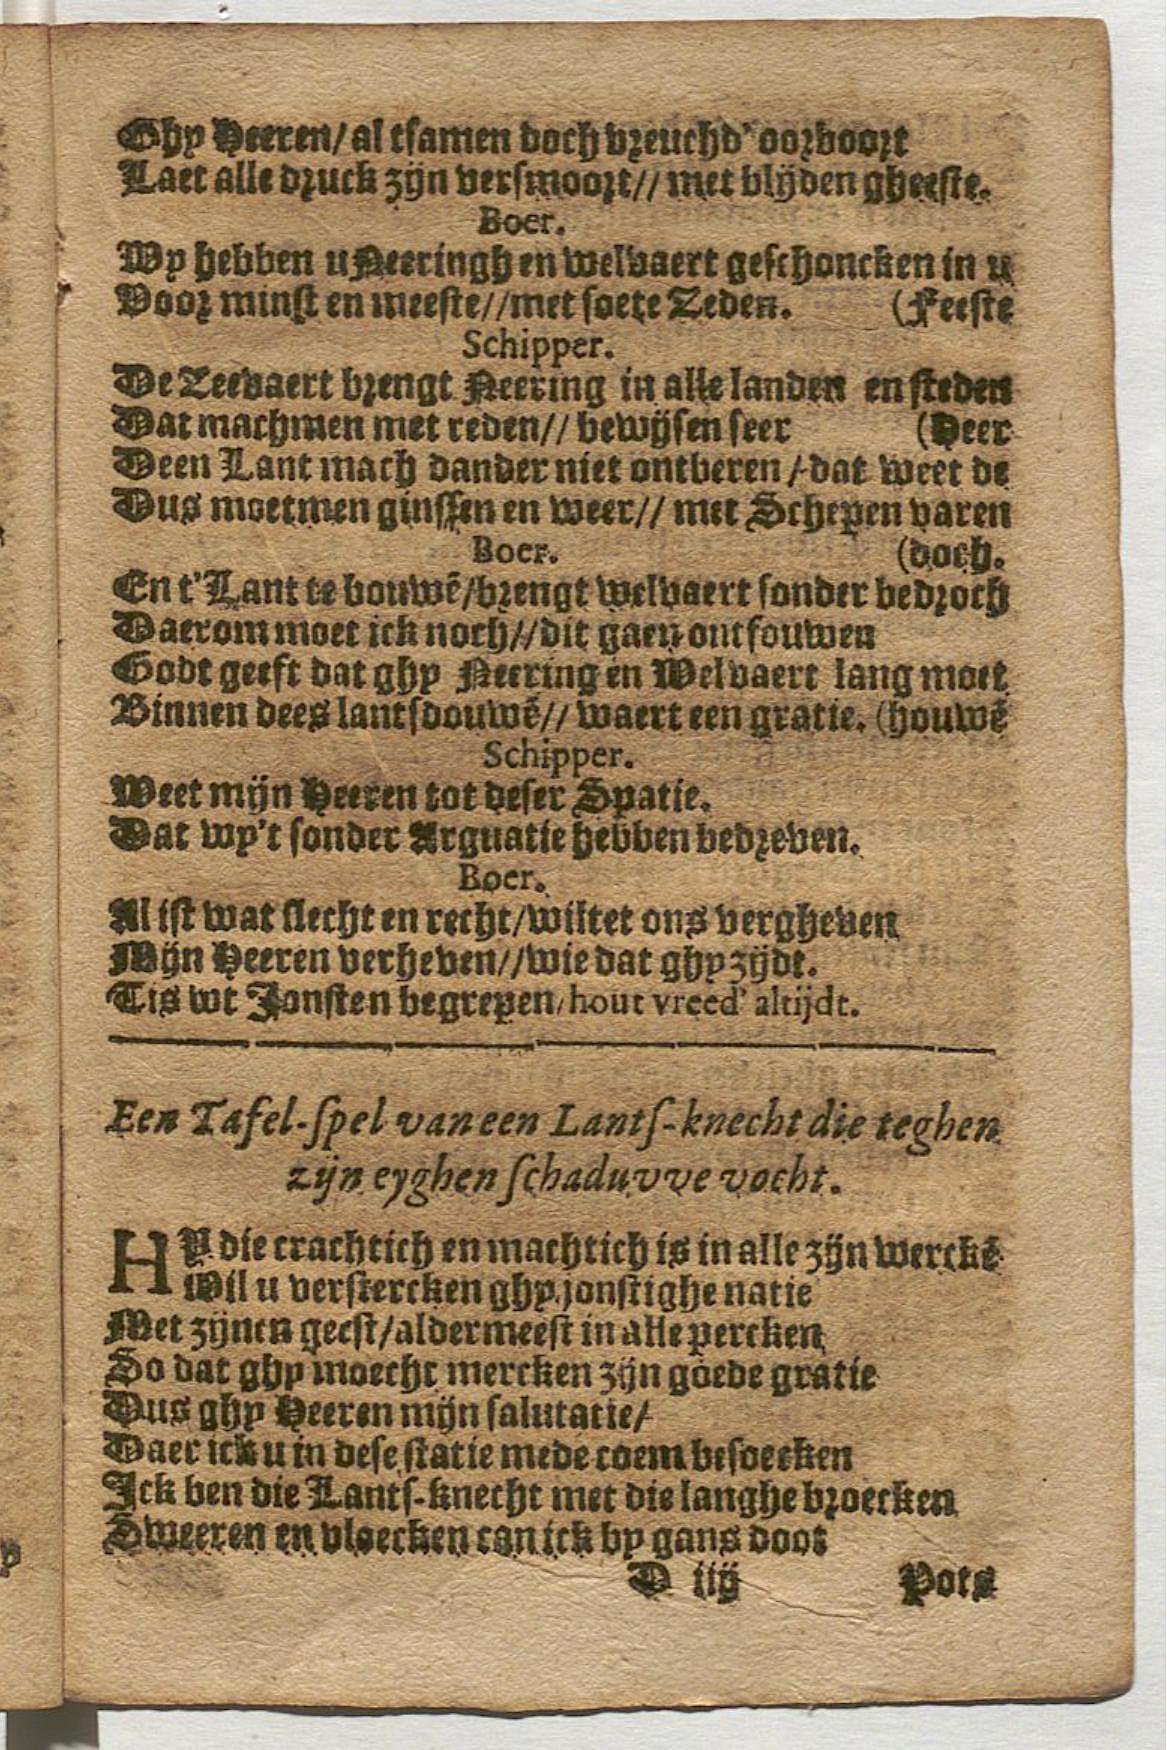 Ghy Heeren/ al tsamen doch vreuchd' oorboort
Laet alle druck zijn versmoort// met blijden gheeste.
Boer.
Wy hebben u Neeringh en welvaert geschoncken in u
Voor minst en meeste//met soete Zeden. (Feeste
Schipper.
De Zeevaert brengt Neering in alle landen en steden
Dat machmen met reden// bewijsen seer (Heer
Deen Lant mach dander niet ontberen/ dat weet de
Dus moetmen ginssen en weer// met Schepen varen
Boer. (doch.
En t'Lant te bouwē/brengt welvaert sonder bedroch
Daerom moet ick noch//dit gaen ontfouwen
Godt geeft dat ghy Neering en Welvaert lang moet
Binnen dees lantsdouwē// waert een gratie. (houwē
Schipper.
Weet mijn Heeren tot deser Spatie.
Dat wy't sonder Arguatie hebben bedreven.
Boer.
Al ist wat slecht en recht/wiltet ons vergheven
Mijn Heeren verheven//wie dat ghy zijdt.
Tis wt Jonsten begrepen/hout vreed' altijdt.
Een Tafel-spel van een Lants-knecht die teghen
zijn eyghen schaduvve vocht.
HY die crachtich en machtich is in alle zijn werckē
Wil u verstercken ghy jonstighe natie
Met zijnen geest/aldermeest in alle percken
So dat ghy moecht mercken zijn goede gratie
Dus ghy Heeren mijn salutatie/
Daer ick u in dese statie mede coem besoecken
Ick ben die Lants-knecht met die langhe broecken
Sweeren en vloecken can ick by gans doot
D iij Pots